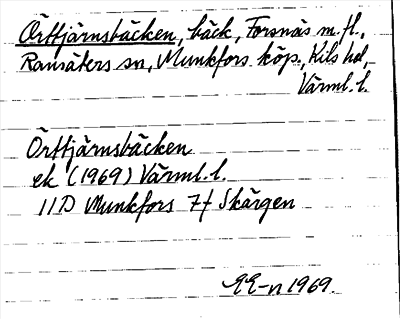 Örttjärnsbäcken, bäck, Forsnäs m.fl.,
Ransäters sn, Munkfors köp., Kils hd,
Värml. l.
Örttjärnsbäcken
ek (1969) Värml. l.
11D Munkfors 7f Skärgen
EE-n 1969.